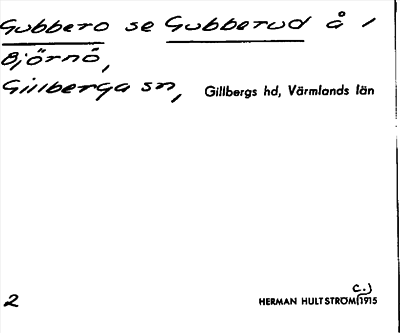 Gubbero se Gubberud å i
Björnö,
Gillberga sn, Gillbergs hd, Värmlands län
c.)
2 HERMAN HULTSTRÖM 1915